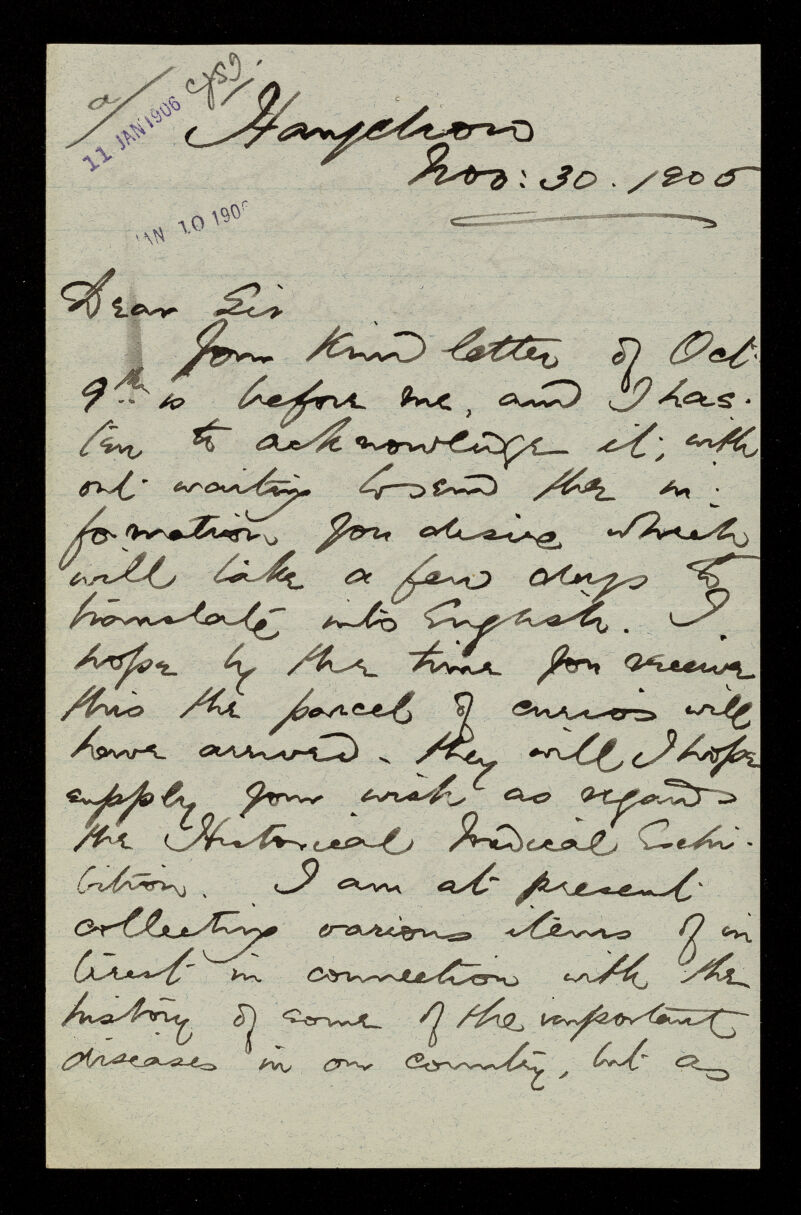 a/
11 JAN 1906
Hangchow
Nov: 30. 1905
JAN 10 190
Dear Sir
Your Kind letter of Oct:
9th is before me, and I has-
ten to acknowledge it; with
out waiting to send the in-
formation you desire which
will take a few days to
translate into English. I
hope by the time you receive
this the parcel of curios will
have arrived. they will I hope
supply your wish as regards
the Historical Medical Exhi-
bition. I am at present
collecting various items of in
terest in connection with the
history of some of the important
diseases in our country, but as